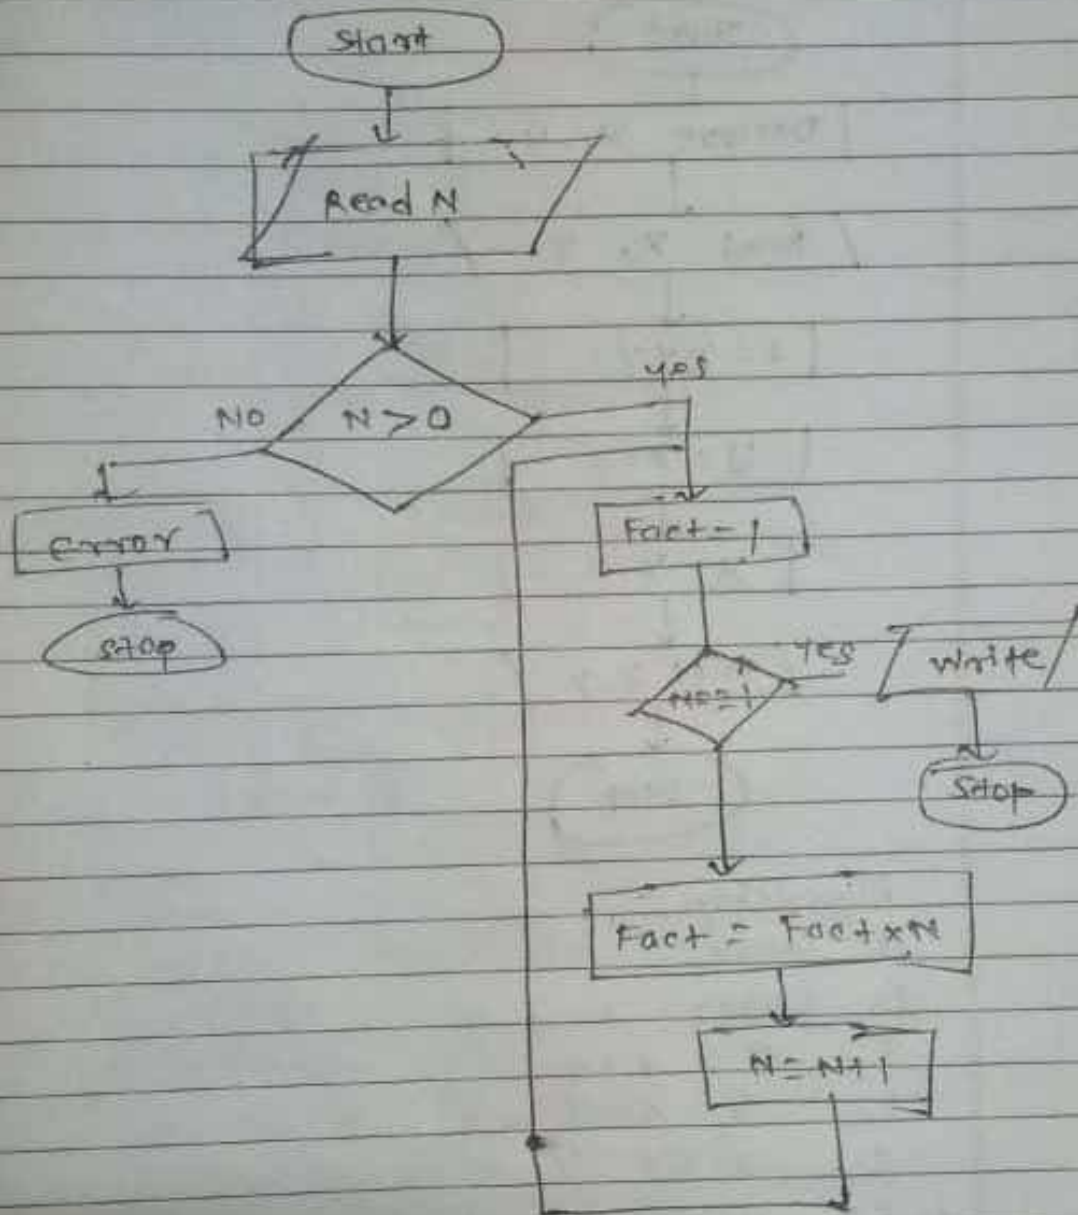 Start
Read N
N > 0
NO
yes
error
stop
Fact = 1
N == 1
YES
Write
Stop
Fact = Fact x N
N = N + 1